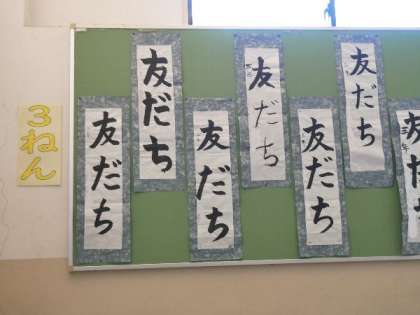 3ねん
友だち
友だち
友だち
友だち
友だち
友だち
友だち